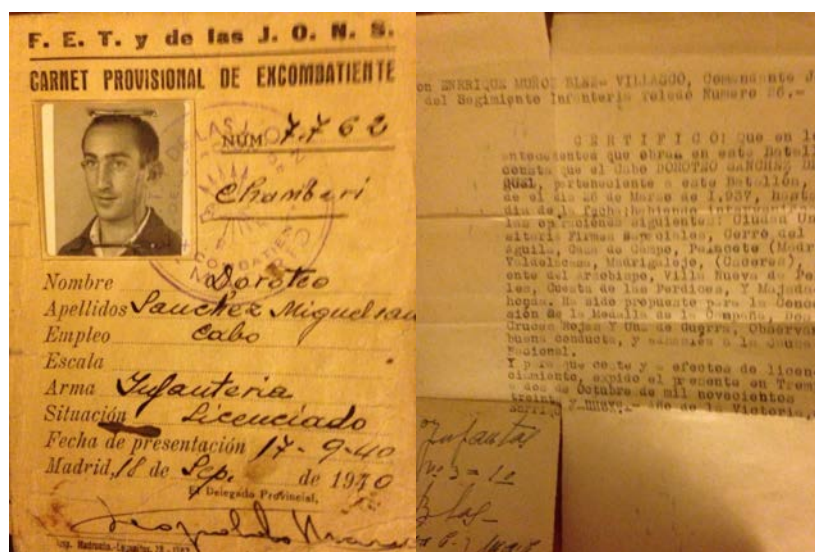 F. E. T. y de las J. O. N. S.
CARNET PROVISIONAL DE EXCOMBATIENTE
NÚM 7.762
Chamberi
Nombre Doroteo
Apellidos Sanchez Miguelsan
Empleo Cabo
Escala
Arma Infanteria
Situación Licenciado
Fecha de presentación 17-9-40
Madrid, 18 de Sep. de 1940
El Delegado Provincial,
on ENRIQUE MUÑOZ VILLASCO, Comandante J
del Regimiento Infanteria Toledo Numero 26.-
CERTIFICO: Que en lo
antecedentes que obran en este Batall
consta que el Cabo DOROTEO SANCHEZ
GUAL, perteneciente a este Batallón,
de el dia 26 de Marzo de 1.937, hasta
dia de la fecha; habiendo
las operaciones siguientes: Ciudad Un
sitaria Firmas Especiales, Cerro del
Aguila, Casa de Campo, (Madr
Valdelacasa, Madrigalejo, (Caceres),
ente del Arzobispo, Villa Nueva de
les, Cuesta de las Perdices, Y Majada
honda. Ha sido propuesto para la Conce
sión de la Medalla de la Campaña, Dos
Cruces Rojas Y Una de Guerra, Observan
buena conducta, y a la Causa
Nacional.
Y para que conste y a efectos de licen
ciamiento, expido el presente en Trem
a dos de Octubre de mil novecientos
treint Año de la Victoria,
Infanta